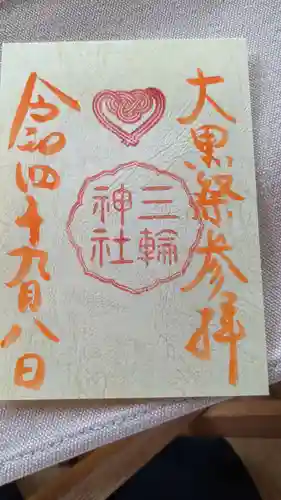 大黒祭参拝
三輪
神社
令和四十九月八日